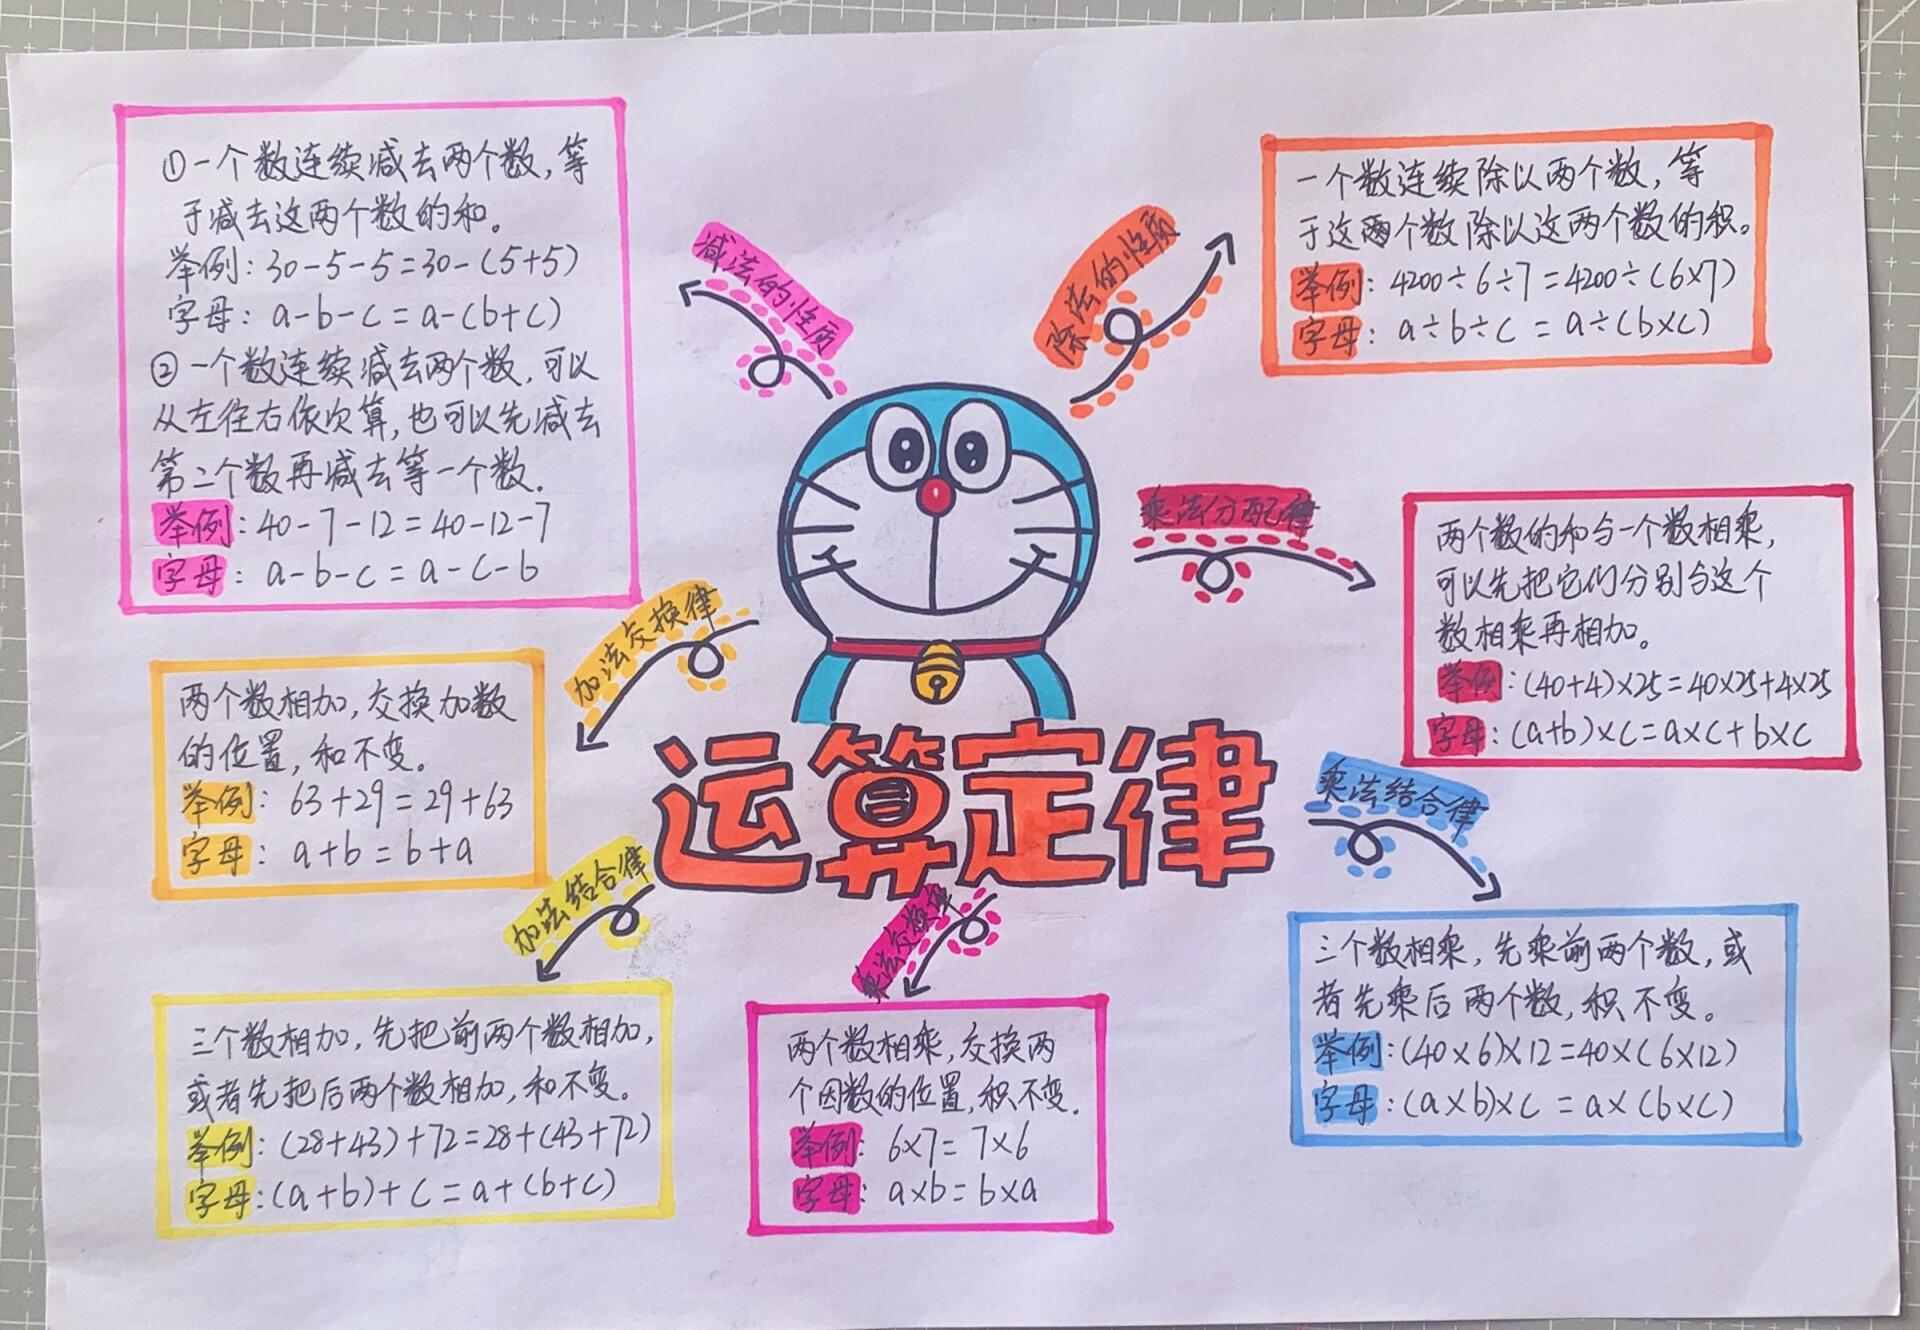 ①一个数连续减去两个数，等
于减去这两个数的和。
举例：30-5-5=30-(5+5)
字母：a-b-c=a-(b+c)
②一个数连续减去两个数，可以
从左往右依次算，也可以先减去
第二个数再减去等一个数.
举例：40-7-12=40-12-7
字母：a-b-c=a-c-b
减法的性质
除法的性质
一个数连续除以两个数，等
于这两个数除以这两个数的积。
举例：4200÷6÷7=4200÷(6×7)
字母：a÷b÷c=a÷(b×c)
乘法分配律
两个数的和与一个数相乘，
可以先把它们分别与这个
数相乘再相加。
举例：(40+4)×25=40×25+4×25
字母：(a+b)×c=a×c+b×c
加法交换律
两个数相加，交换加数
的位置，和不变。
举例：63+29=29+63
字母：a+b=b+a
运算定律
乘法结合律
三个数相乘，先乘前两个数，或
者先乘后两个数，积不变。
举例：(40×6)×12=40×(6×12)
字母：(a×b)×c=a×(b×c)
加法结合律
三个数相加，先把前两个数相加，
或者先把后两个数相加，和不变。
举例：(28+43)+72=28+(43+72)
字母：(a+b)+c=a+(b+c)
乘法交换律
两个数相乘，交换两
个因数的位置，积不变.
举例：6×7=7×6
字母：a×b=b×a